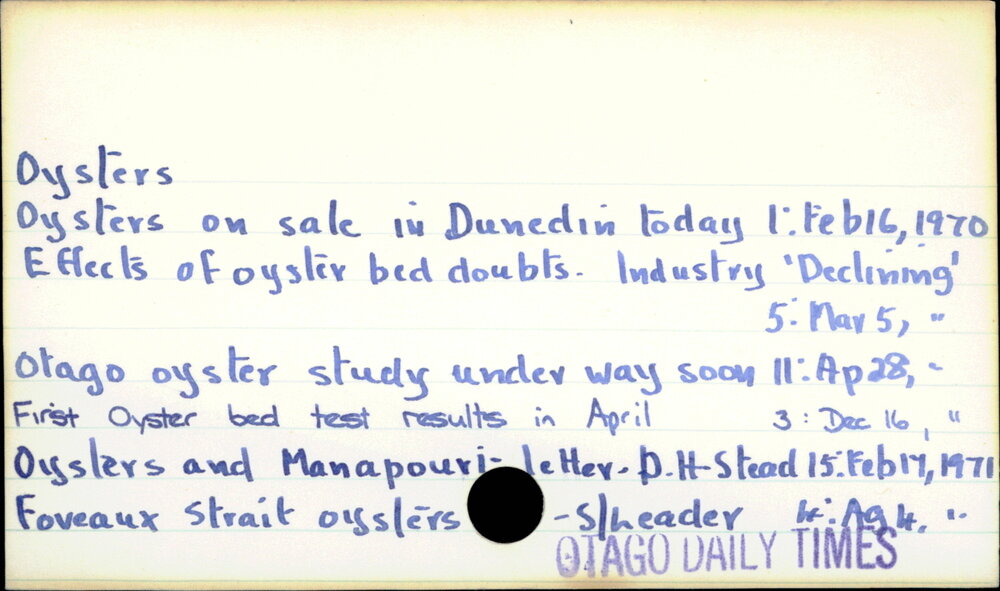 Oysters
Oysters on sale in Dunedin today 1: Feb 16, 1970
Effects of oyster bed doubts. Industry 'Declining'
5: Mar 5, "
Otago oyster study under way soon 11: Ap 28, "
First Oyster bed test results in April 3: Dec 16, "
Oysters and Manapouri- letter- D.H. Stead 15: Feb 17, 1971
Foveaux Strait oysters -S/header 4: Ag 4. "
OTAGO DAILY TIMES